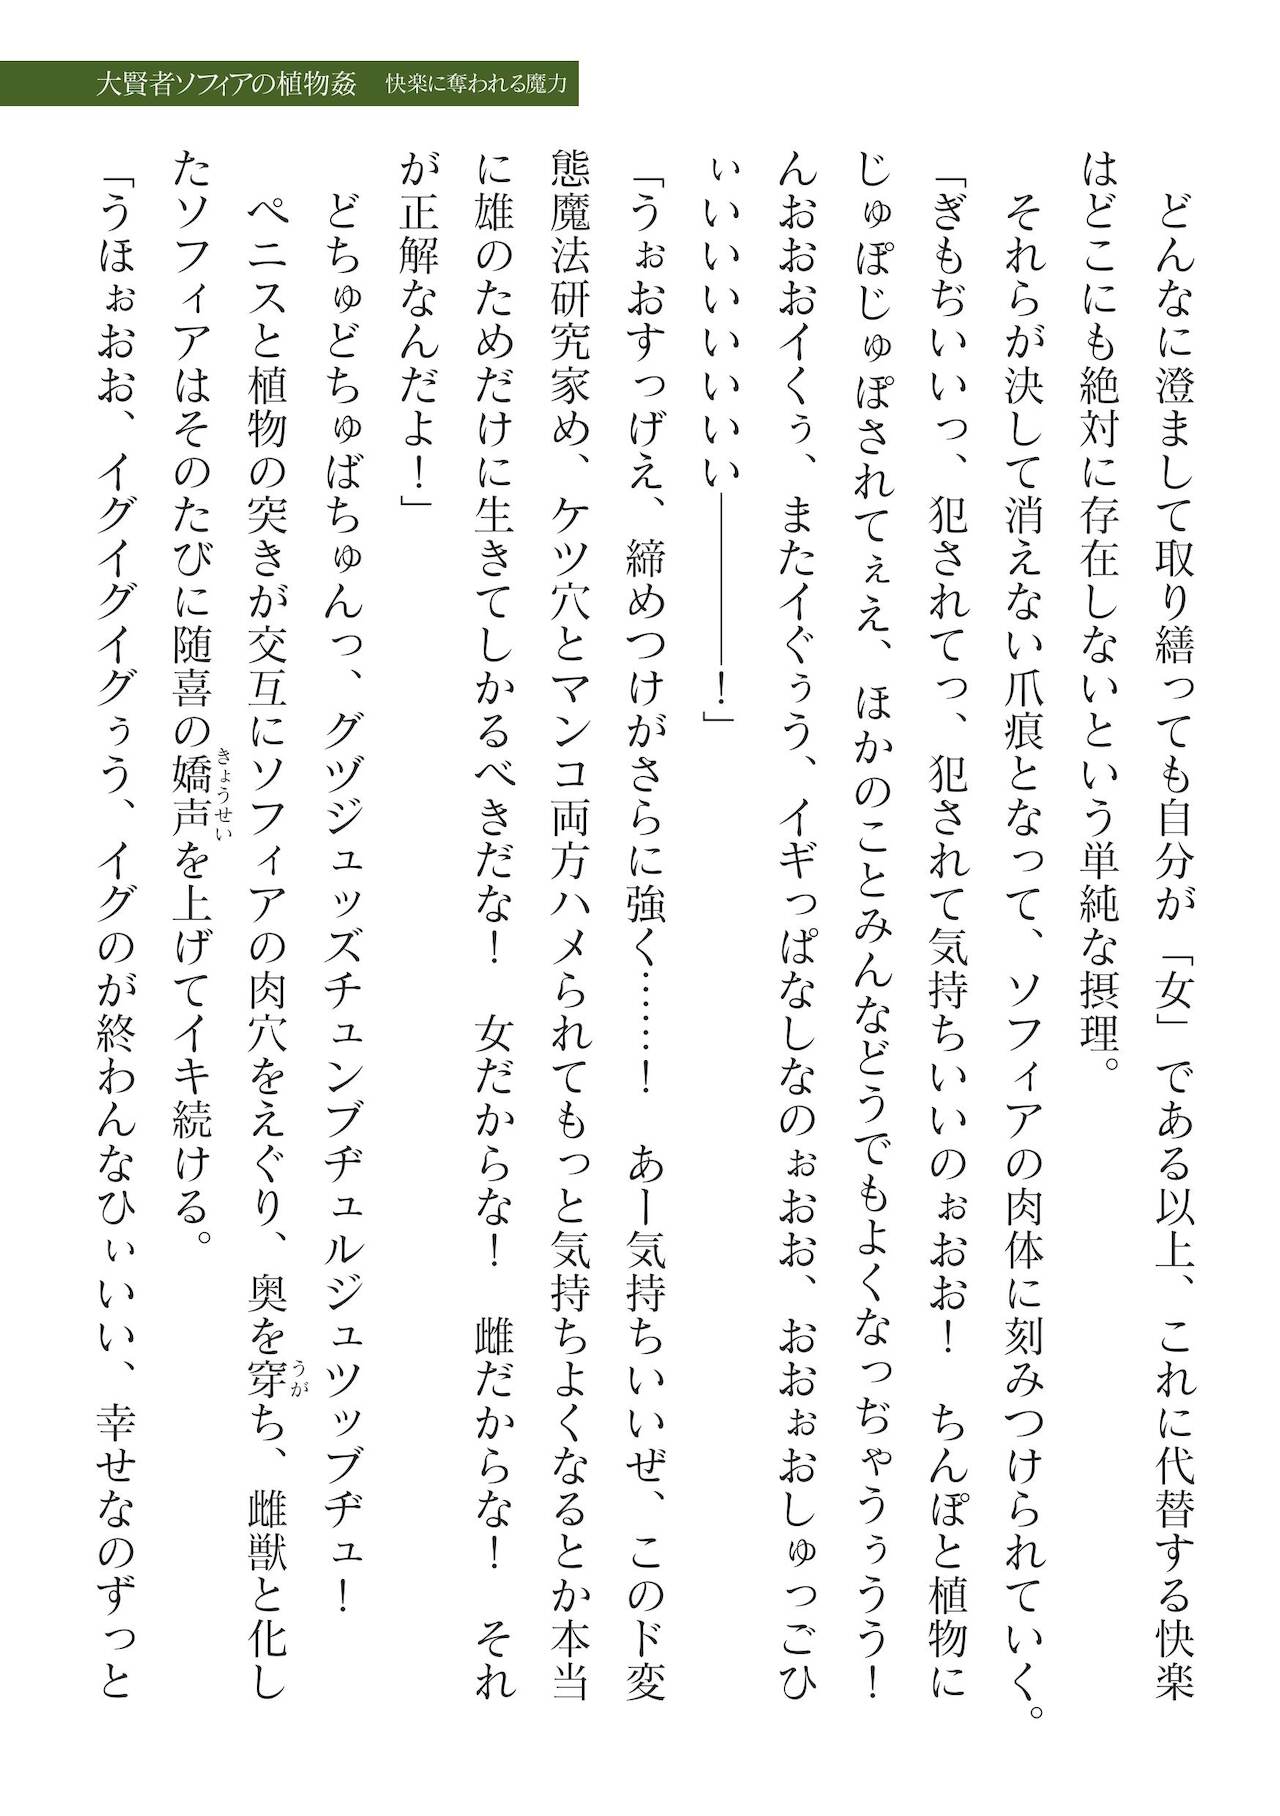 大賢者ソフィアの植物姦　快楽に奪われる魔力
　どんなに澄まして取り繕っても自分が「女」である以上、これに代替する快楽
はどこにも絶対に存在しないという単純な摂理。
　それらが決して消えない爪痕となって、ソフィアの肉体に刻みつけられていく。
「ぎもぢいいっ、犯されてっ、犯されて気持ちいいのぉおお！　ちんぽと植物に
じゅぽじゅぽされてぇえ、ほかのことみんなどうでもよくなっぢゃうぅうう！
んおおおイくぅ、またイぐぅう、イギっぱなしなのぉおお、おおぉおしゅっごひ
ぃいいいいいいい――――！」
「うぉおすっげえ、締めつけがさらに強く……！　あー気持ちいいぜ、このド変
態魔法研究家め、ケツ穴とマンコ両方ハメられてもっと気持ちよくなるとか本当
に雄のためだけに生きてしかるべきだな！　女だからな！　雌だからな！　それ
が正解なんだよ！」
　どちゅどちゅばちゅんっ、グヅジュッズチュンブヂュルジュツッブヂュ！
　ペニスと植物の突きが交互にソフィアの肉穴をえぐり、奥を穿うがち、雌獣と化し
たソフィアはそのたびに随喜の嬌声きょうせいを上げてイキ続ける。
「うほぉおお、イグイグイグぅう、イグのが終わんなひぃいい、幸せなのずっと